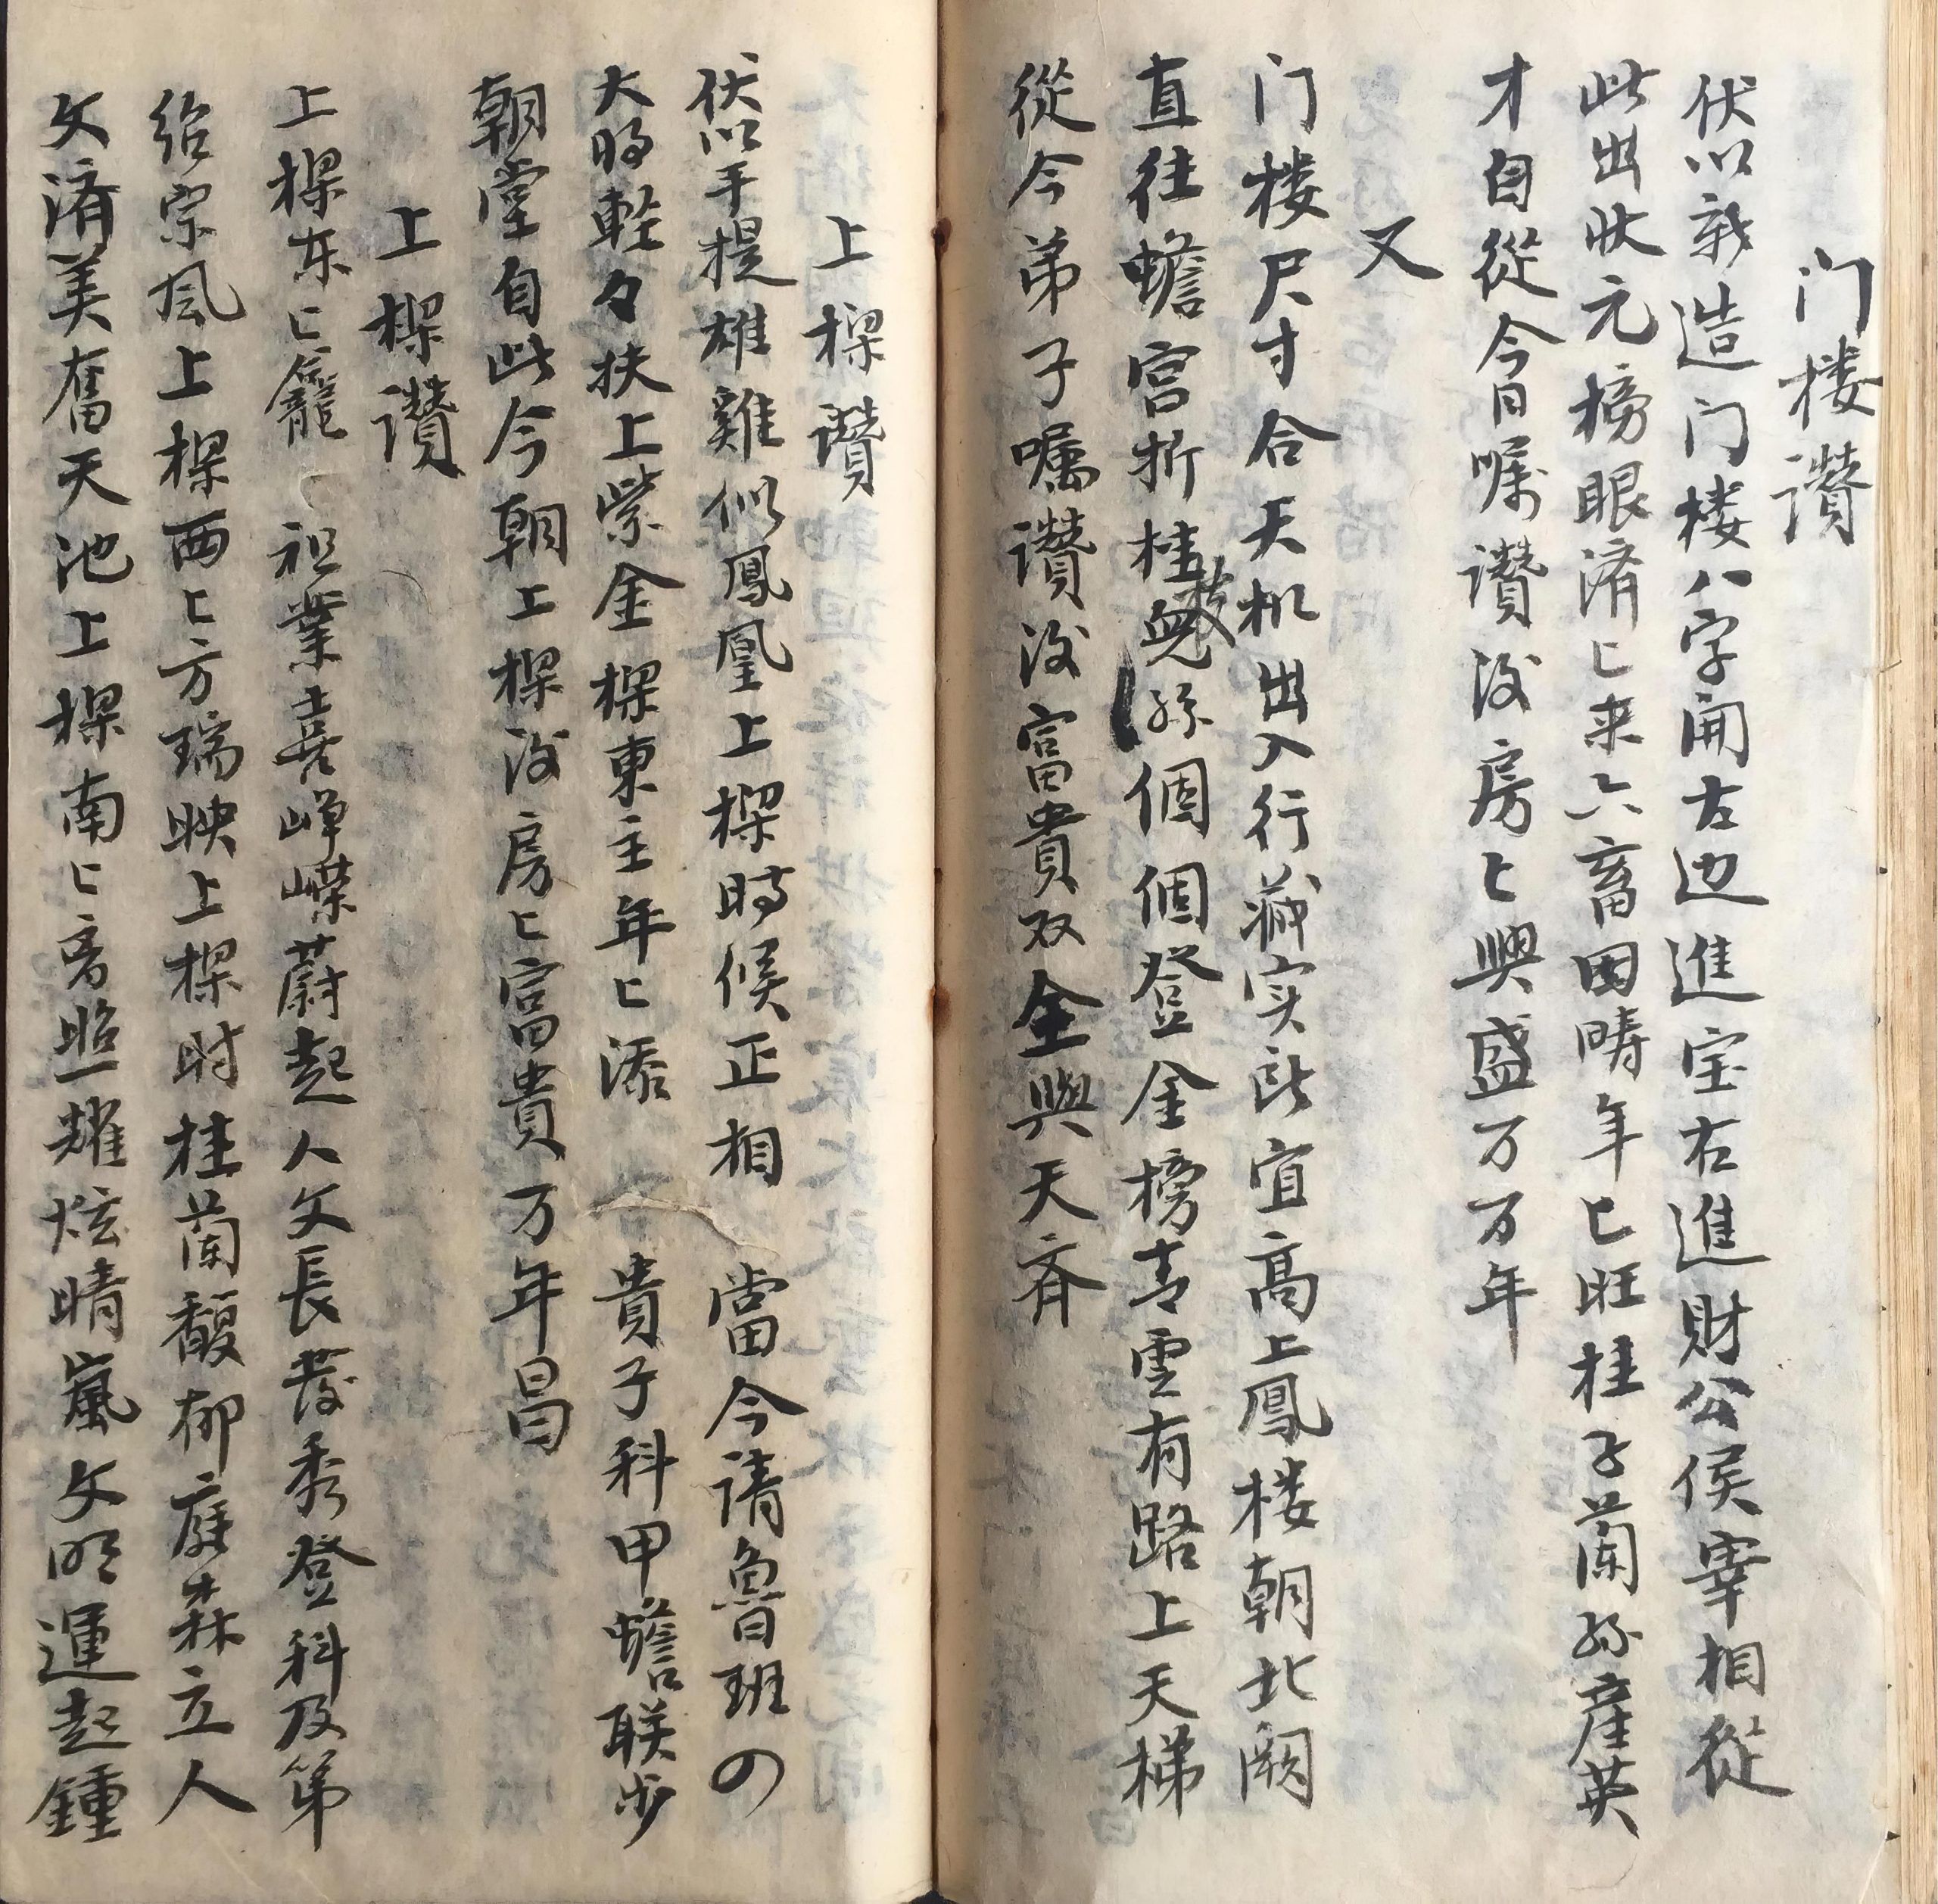 门楼讚
伏以新造门楼八字開左边進宝右進財公侯宰相從
此出狀元榜眼濟匕来六畜田疇年匕旺桂子蘭孙產英
才自從今日嘱讚後房匕興盛万万年
又
门楼尺寸合天机出入行藏实此宜高上鳳楼朝北闕
直往蟾宫折桂枝兒孙個個登金榜青雲有路上天梯
從今弟子嘱讚後富貴双全與天斉
上樑讚
伏以手提雄雞似鳳凰上樑時候正相當今请魯班の
大时軽々扶上紫金樑東主年匕添貴子科甲蟾联步
朝堂自此今朝上樑後房匕富貴万年昌
上樑讚
上樑东匕籠匕祖業喜崢嶸蔚起人文長發秀登科及第
绍宗風上樑西匕方瑞映上樑时桂蘭馥郁庭森立人
文濟美奮天池上樑南匕旁照耀炫晴嵐文明運起鍾